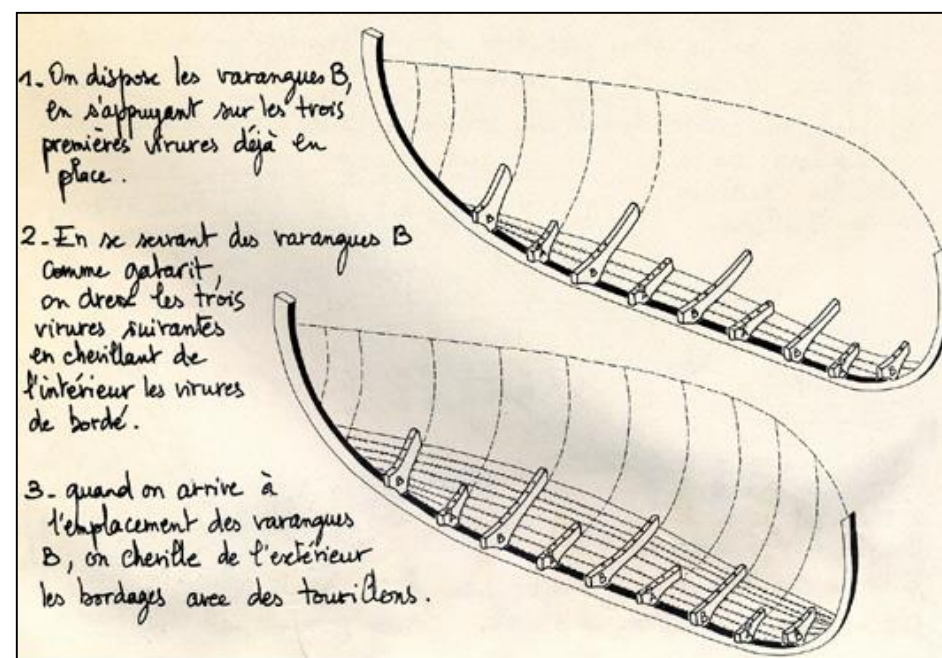 1 - On dispose les varangues B,
en s'appuyant sur les trois
premières virures déjà en
place.
2 - En se servant des varangues B
comme gabarit,
on dresse les trois
virures suivantes
en chevillant de
l'intérieur les virures
de bordé.
3 - quand on arrive à
l'emplacement des varangues
B, on cheville de l'extérieur
les bordages avec des tourillons.